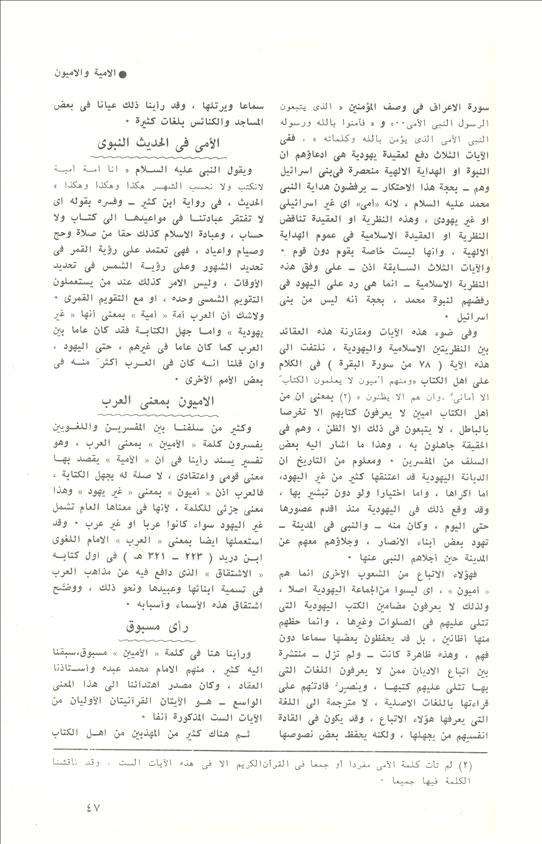 ● الامية والاميون
سورة الاعراف فى وصف المؤمنين « الذى يتبعون
الرسول النبى الأمى ٠٠» و « فآمنوا بالله ورسوله
النبى الأمى الذى يؤمن بالله وكلماته » ، ففى
الآيات الثلاث دفع لعقيدة يهودية هى ادعاؤهم ان
النبوة او الهداية الالهية منحصرة فى بنى اسرائيل
وهم ــ بحجة هذا الاحتكار ــ يرفضون هداية النبى
محمد عليه السلام ، لانه «أمى» اى غير اسرائيلى
او غير يهودى ، وهذه النظرية او العقيدة تناقض
النظرية او العقيدة الاسلامية فى عموم الهداية
الالهية ، وانها ليست خاصة بقوم دون قوم ٠
والآيات الثلاث السابقة اذن ــ على وفق هذه
النظرية الاسلامية ــ انما هى رد على اليهود فى
رفضهم لنبوة محمد ، بحجة أنه ليس من بنى
اسرائيل ٠
وفى ضوء هذه الآيات ومقارنة هذه العقائد
بين النظريتين الاسلامية واليهودية ، نلتفت الى
هذه الآية ( ٧٨ من سورة البقرة ) فى الكلام
على اهل الكتاب «ومنهم أميون لا يعلمون الكتاب
الا أمانى ، وان هم الا يظنون » (٢) بمعنى ان من
أهل الكتاب اميين لا يعرفون كتابهم الا تخرصا
بالباطل ، لا يتبعون فى ذلك الا الظن ، وهم فى
الحقيقة جاهلون به ، وهذا ما اشار اليه بعض
السلف من المفسرين ٠ ومعلوم من التاريخ ان
الديانة اليهودية قد اعتنقها كثير من غير اليهود،
اما اكراها ، واما اختيارا ولو دون تبشير بها ،
وقد وقع ذلك فى اليهودية منذ اقدم عصورها
حتى اليوم ، وكان منه ــ والنبى فى المدينة ــ
تهود بعض أبناء الانصار ، وجلاؤهم معهم عن
المدينة حين أجلاهم النبى عنها ٠
فهؤلاء الاتباع من الشعوب الأخرى انما هم
« أميون » ، اى ليسوا من الجماعة اليهودية اصلا ،
ولذلك لا يعرفون مضامين الكتب اليهودية التى
تتلى عليهم فى الصلوات وغيرها ، وانما حظهم
منها أظانين ، بل قد يحفظون بعضها سماعا دون
فهم ، وهذه ظاهرة كانت ــ ولم تزل ــ منتشرة
بين اتباع الاديان ممن لا يعرفون اللغات التى
بها تتلى عليهم كتبها ، ويصر قادتهم على
قراءتها باللغات الاصلية ، لا مترجمة الى اللغة
التى يعرفها هؤلاء الاتباع ، وقد يكون فى القادة
انفسهم من يجهلها ، ولكنه يحفظ بعض نصوصها
سماعا ويرتلها ، وقد رأينا ذلك عيانا فى بعض
المساجد والكنائس بلغات كثيرة ٠
الأمى فى الحديث النبوى
ويقول النبى عليه السلام « انا امة أمية
لانكتب ولا نحسب الشهر هكذا وهكذا وهكذا »
الحديث ، فى رواية ابن كثير ــ وفسره بقوله اى
لا تفتقر عبادتنا فى مواعيدها الى كتاب ولا
حساب ، وعبادة الاسلام كذلك حقا من صلاة وحج
وصيام واعياد ، فهى تعتمد على رؤية القمر فى
تحديد الشهور وعلى رؤية الشمس فى تحديد
الأوقات ، وليس الامر كذلك عند من يستعملون
التقويم الشمسى وحده ، او مع التقويم القمرى ٠
ولاشك أن العرب أمة « أمية » بمعنى أنها « غير
يهودية » واما جهل الكتابة فقد كان عاما بين
العرب كما كان عاما فى غيرهم ، حتى اليهود ،
وان قلنا انه كان فى العرب أكثر منه فى
بعض الأمم الأخرى ٠
الاميون بمعنى العرب
وكثير من سلفنا بين المفسرين واللغويين
يفسرون كلمة « الأميين » بمعنى العرب ، وهو
تفسير يسند رأينا فى ان « الأمية » يقصد بها
معنى قومى واعتقادى ، لا صلة له بجهل الكتابة ،
فالعرب اذن « أميون » بمعنى « غير يهود » وهذا
معنى جزئى للكلمة ، لأنها فى معناها العام تشمل
غير اليهود سواء كانوا عربا او غير عرب ٠ وقد
استعملها ايضا بمعنى « العرب » الامام اللغوى
ابن دريد ( ٢٢٣ ــ ٣٢١ هـ ) فى اول كتابه
« الاشتقاق » الذى دافع فيه عن مذاهب العرب
فى تسمية ابنائها وعبيدها ونحو ذلك ، ووضح
اشتقاق هذه الأسماء وأسبابه ٠
رأى مسبوق
ورأينا هنا فى كلمة « الأميين » مسبوق،سبقنا
اليه كثير ، منهم الامام محمد عبده وأستاذنا
العقاد ، وكان مصدر اهتدائنا الى هذا المعنى
الواسع ــ هو الآيتان القرآنيتان الأوليان من
الآيات الست المذكورة آنفا ٠
ثم هناك كثير من المهذبين من اهل الكتاب
(٢) لم تأت كلمة الأمى مفردا أو جمعا فى القرآن الكريم الا فى هذه الآيات الست ، وقد ناقشنا
الكلمة فيها جميعا ٠
٤٧